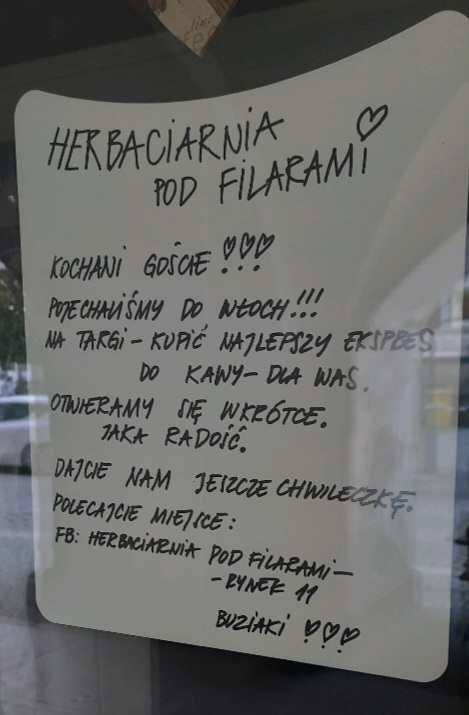 HERBACIARNIA
POD FILARAMI
KOCHANI GOŚCIE !!!
POJECHALIŚMY DO WŁOCH!!!
NA TARGI - KUPIĆ NAJLEPSZY EKSPRES
DO KAWY - DLA WAS.
OTWIERAMY SIĘ WKRÓTCE.
JAKA RADOŚĆ.
DAJCIE NAM JESZCZE CHWILECZKĘ.
POLECAJCIE MIEJSCE:
FB: HERBACIARNIA POD FILARAMI -
- RYNEK 11
BUZIAKI !!!